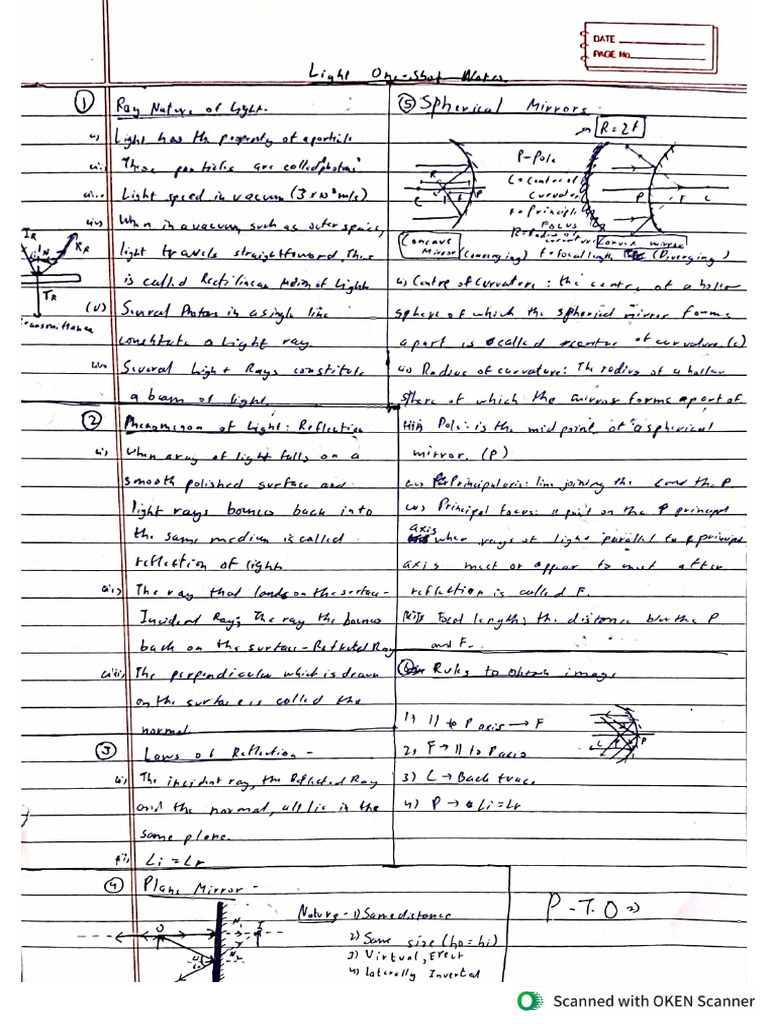 DATE
PAGE No.
Light One-Shot Notes
① Ray Nature of Light.
i) Light has the property of a particle
ii) These particles are called "photons"
iii) Light speed in vacuum (3×10⁸ m/s)
iv) When in a vacuum, such as outer space,
light travels straightforward. This
is called Rectilinear Motion of Light
(v) Several Photons in a single line
constitute a Light ray.
vi) Several Light Rays constitute
a beam of light.
IR
N
RR
TR
Transmittance
② Phenomenon of Light: Reflection
i) When a ray of light falls on a
smooth polished surface and
light rays bounces back into
the same medium is called
reflection of light.
ii) The ray that lands on the surface -
Incident Ray; The ray the bounces
back on the surface - Reflected Ray
iii) The perpendicular which is drawn
on the surface is called the
normal.
③ Laws of Reflection -
i) The incident ray, the Reflected Ray
and the normal, all lie in the
same plane.
ii) Li = Lr
④ Plane Mirror -
O
N1
I
N2
Nature - 1) Same distance
2) Same size (ho = hi)
3) Virtual, Erect
4) Laterally Inverted
⑤ Spherical Mirrors
R = 2f
P - Pole
C - Centre of
Curvature
F - Principle
Focus
R - Radius of
curvature
f - focal length
R
C
F
P
P
F
C
Concave
Mirror (converging)
Convex mirror
(Diverging)
i) Centre of curvature: the centre of a hollow
sphere of which the spherical mirror forms
a part is called centre of curvature (c)
ii) Radius of curvature: The radius of a hollow
sphere of which the mirror forms a part of
iii) Pole: is the mid point of a spherical
mirror. (P)
iv) Principal axis: line joining the C and the P.
v) Principal focus: a point on the principal
axis
when rays of light parallel to principal
axis meet or appear to meet after
reflection is called F.
vi) Focal length; the distance b/w the P
and F.
⑥ Rules to obtain image
1) || to P axis → F
2) F → || to P axis
3) C → Back trace
4) P → Li = Lr
C
P
P.T.O ⇒
Scanned with OKEN Scanner